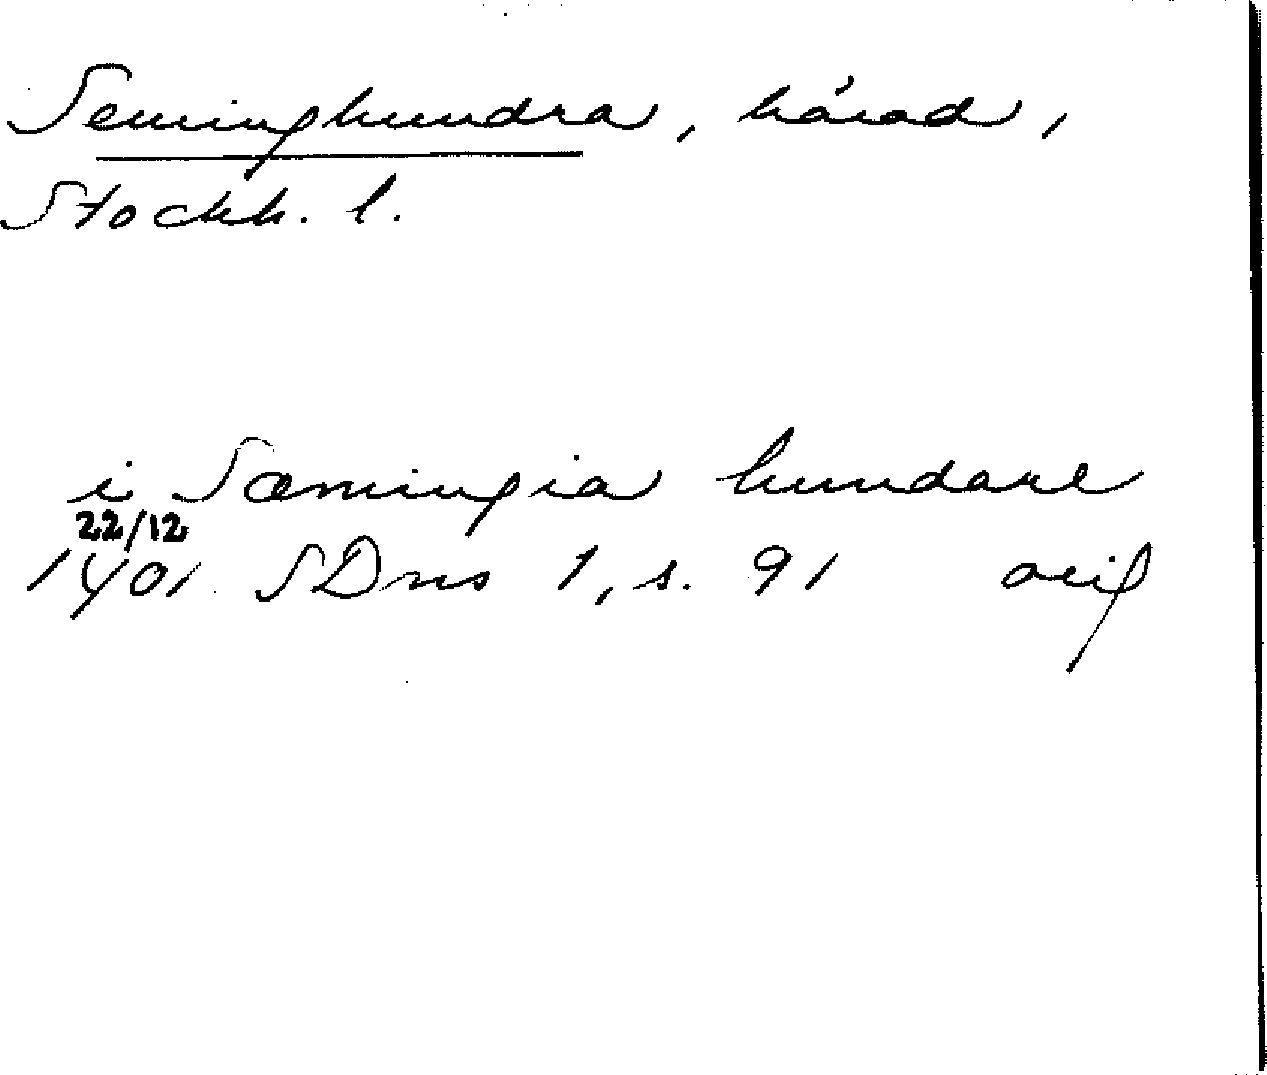 Seminghundra, härad,
Stockh. l.
i Sæmingia hundare
22/12
1401 SDns 1, s. 91 orig